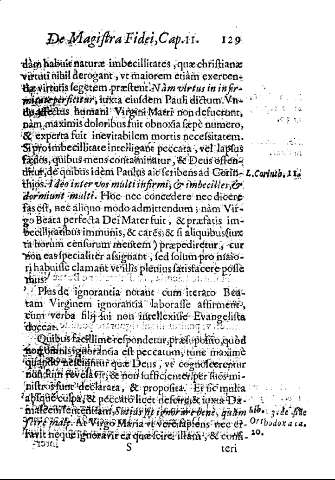 De Magistra Fidei, Cap. 11. 129
dam habuit naturæ imbecillitates, quæ christianæ
virtuti nihil derogant, vt maiorem etiam exercen-
dæ virtutis segetem præstent. Nam virtus in infir-
mitate perficitur, iuxta eiusdem Pauli dictum.
affectus humani Virgini Matri non defuerunt,
nam maximis doloribus fuit obnoxia sæpè numero,
& experta fuit inevitabilem mortis necessitatem.
Si pro imbecillitate intelligant peccata, vel lapsus
quibus mens contaminatur, & Deus offen-
ditur, de quibus idem Paulus ait scribens ad Corin-
thios. Ideo inter vos multi infirmi, & imbecilles, &
dormiunt multi. Hoc nec concedere nec dicere
fas est, nec aliquo modo admittendum; nam Vir-
go Beata perfecta Dei Mater fuit, & præfatis im-
becillitatibus immunis, & carēs: & si aliquibus (iux-
ta horum censuram mentem) præpeditur, cur
non eas specialiter assignant, sed solum pro maio-
ri habuisse clamant vt illis plenius satisfacere posse-
mus?
Plus de ignorantia notant cum iterato Bea-
tam Virginem ignorantia laborasse affirment,
cum verba filij sui non intellexisse Evangelista
doceat.
Quibus facillime respondetur, præsupposito, quod
non omnis ignorantia est peccatum, tunc maxime
quando nesciuntur quæ Deus, vt cognoscerentur
non sunt revelata, & non sufficienter per suos mi-
nistros sunt declarata, & proposita. Et sic multa
absque culpa, & peccato licet nescire, & iuxta Da-
masceni sententiam, Satius est ignorare bene, quàm
scire male. At Virgo Maria vt vere sapiens nec er-
ravit neque ignoravit ea quæ scire illam, & consi-
S teri
L. Corinth. 11.
lib. 3. de fide
Orthodoxa ca.
20.